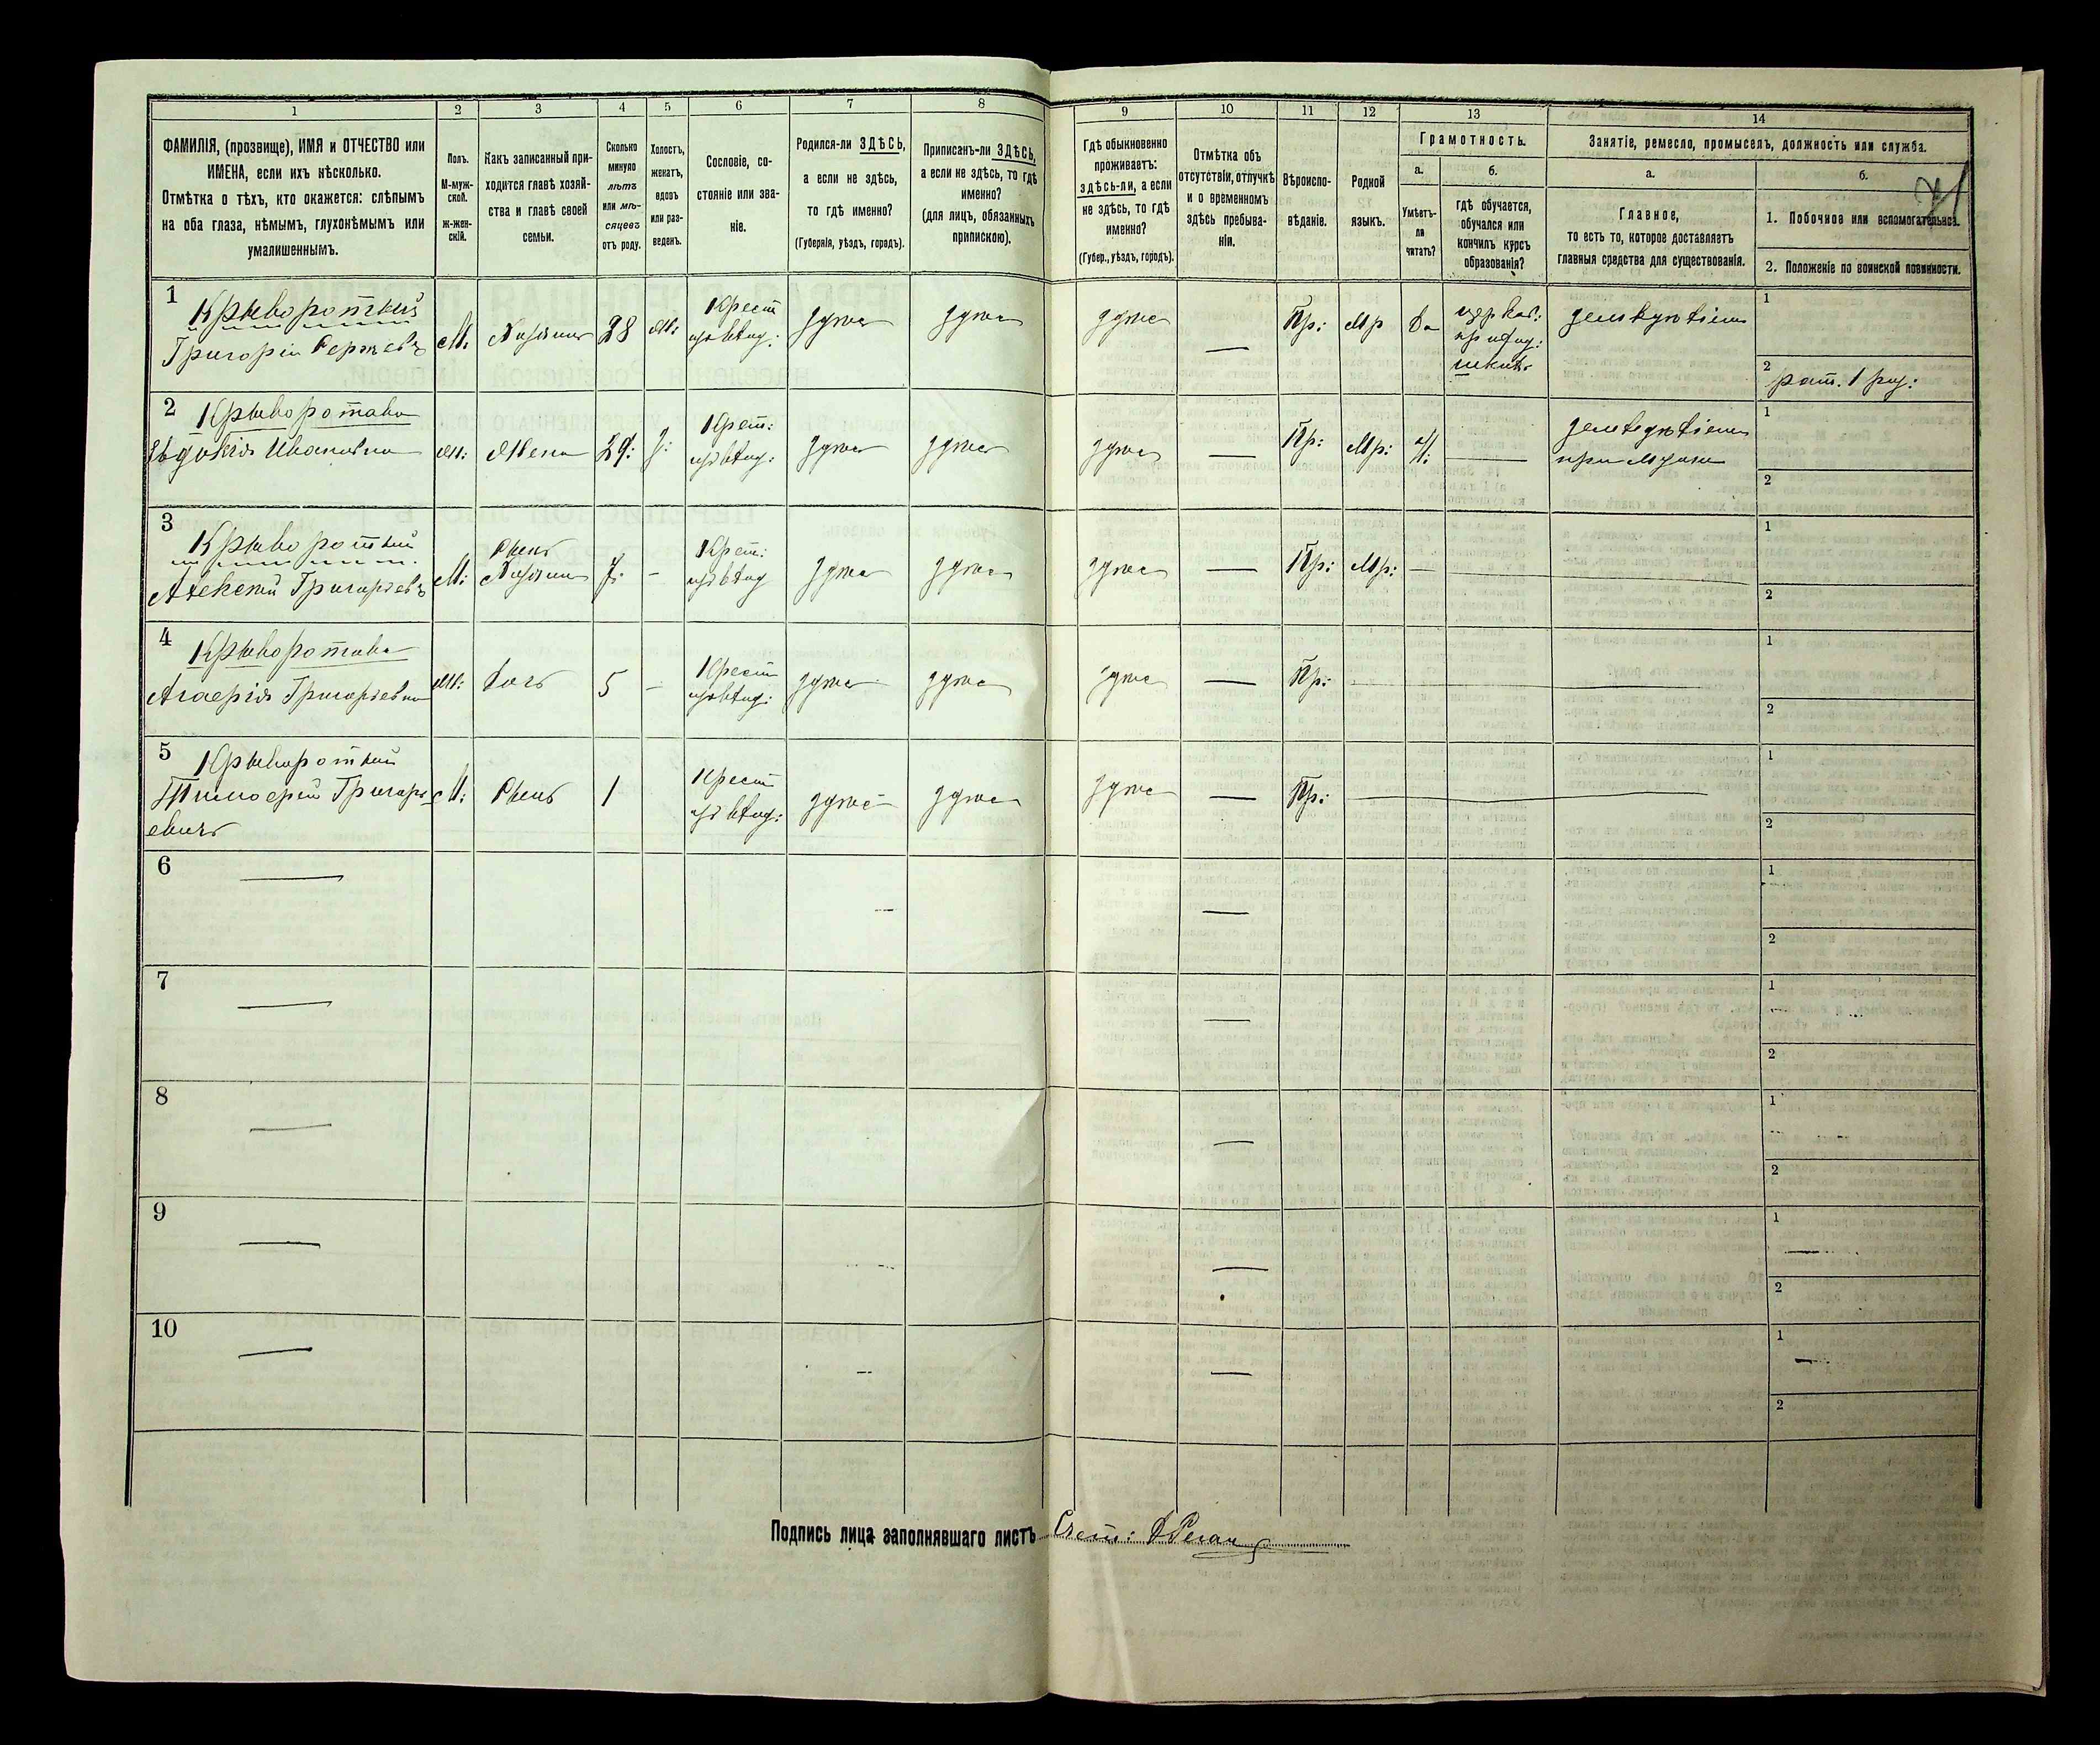 1 2 3 4 5 6 7 8 9 10 11 12 13 14
ФАМИЛІЯ, (прозвище), ИМЯ и ОТЧЕСТВО или
ИМЕНА, если ихъ нѣсколько.
Отмѣтка о тѣхъ, кто окажется: слѣпымъ
на оба глаза, нѣмымъ, глухонѣмымъ или
умалишеннымъ.
Полъ.
М-муж-
ской.
ж-жен-
скій.
Какъ записанный при-
ходится главѣ хозяй-
ства и главѣ своей
семьи.
Сколько
минуло
лѣтъ
или мѣ-
сяцевъ
отъ роду.
Холостъ,
женатъ,
вдовъ
или раз-
веденъ.
Сословіе, со-
стояніе или зва-
ніе.
Родился-ли ЗДѢСЬ,
а если не здѣсь,
то гдѣ именно?
(Губернія, уѣздъ, городъ).
Приписанъ-ли ЗДѢСЬ,
а если не здѣсь, то гдѣ
именно?
(для лицъ, обязанныхъ
припискою).
Гдѣ обыкновенно
проживаетъ:
здѣсь-ли, а если
не здѣсь, то гдѣ
именно?
(Губер., уѣздъ, городъ).
Отмѣтка объ
отсутствіи, отлучкѣ
и о временномъ
здѣсь пребыва-
ніи.
Вѣроиспо-
вѣданіе.
Родной
языкъ.
Грамотность.
а.
Умѣетъ-
ли
читать?
б.
гдѣ обучается,
обучался или
кончилъ курсъ
образованія?
Занятіе, ремесло, промыселъ, должность или служба.
а.
Главное,
то есть то, которое доставляетъ
главныя средства для существованія.
б.
1. Побочное или вспомогательное.
2. Положеніе по воинской повинности.
1
Григорій
М. Хозяинъ 28 Ж. Крест здѣсь здѣсь здѣсь — Пр: Мр да
церков:
приход:
школѣ
земледѣліемъ
1
2
рат. 1 раз:
2
Евдокія Ивановна
Ж: Жена 29: Крест: здѣсь здѣсь здѣсь — Пр: Мр: Н: —
земледѣліемъ
при мужѣ
1
2
3
Алексѣй Григорьевъ
М: Сынъ
Хозяина
7. - Крест: здѣсь здѣсь здѣсь — Пр: Мр: —
1
2
4
Григорьевна
Ж: дочь 5 - Крест здѣсь здѣсь здѣсь — Пр:
1
2
5
Тимофей Григорь
евичъ
М: Сынъ 1 Крест здѣсь здѣсь здѣсь — Пр:
1
2
6 —
1
2
7 —
1
2
8 —
1
2
9 —
1
2
10 —
1
2
Подпись лица заполнявшаго листъ Счет: